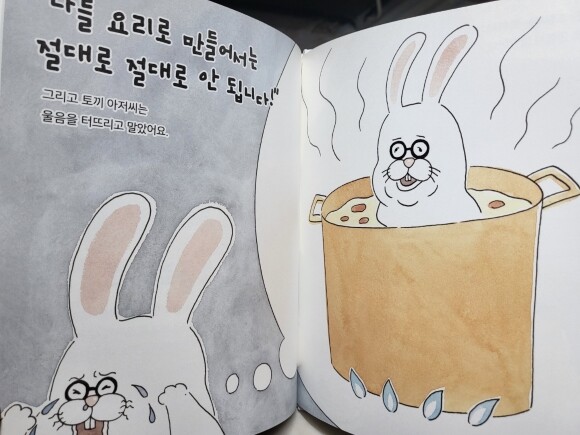 요리로 만들어서는
절대로 절대로 안 됩니다!"
그리고 토끼 아저씨는
울음을 터뜨리고 말았어요.